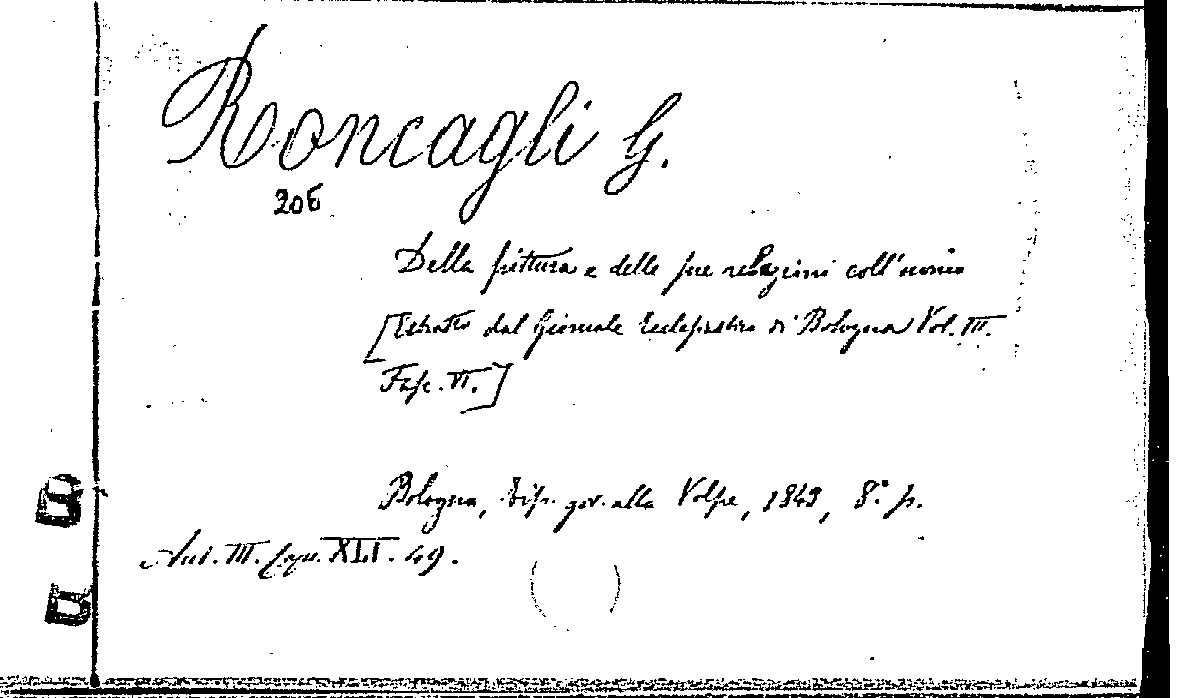 Roncagli G.
206
Della pittura e delle sue relazioni coll'uomo
[Estratto dal Giornale Ecclesiastico di Bologna Vol. III.
Fasc. VI.]
Bologna, tip. gov. alla Volpe, 1849, 8.° p.
Aul. III. Capu. XLI. 49.